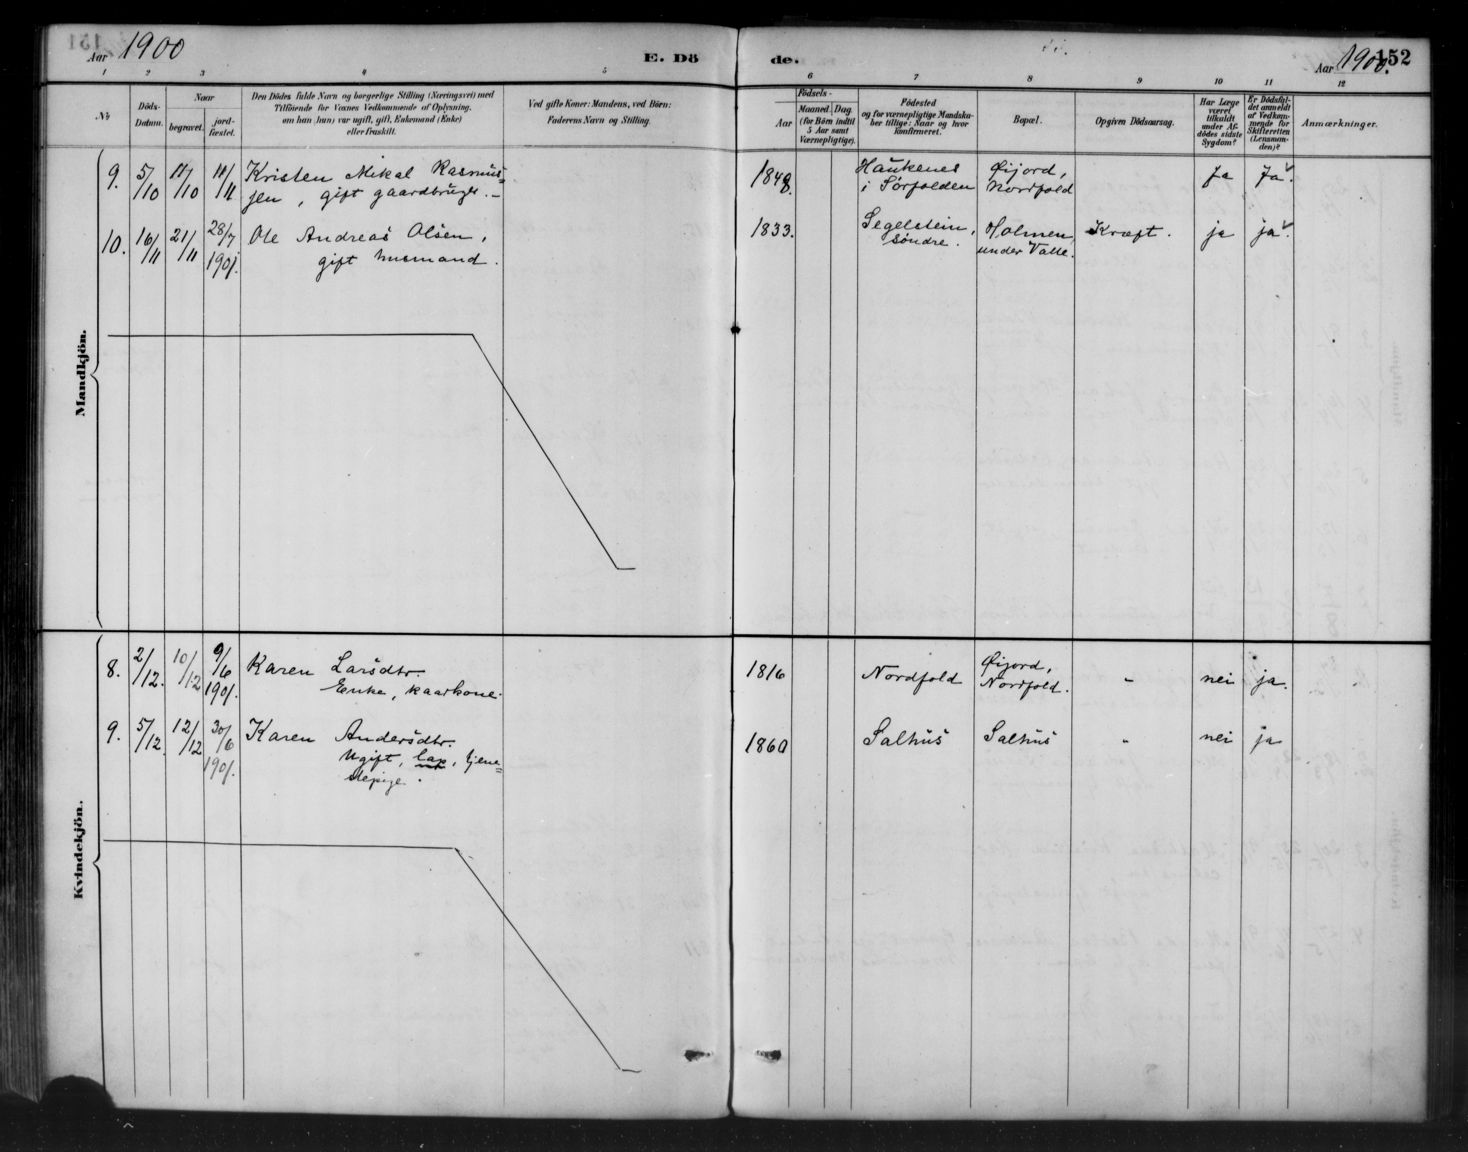 Aar 1900
E. Dö
de.
Aar 1900.
152
1 2 3 4 5 6 7 8 9 10 11 12
№
Döds-
Datum.
Naar
begravet.
jord-
fæstet.
Den Dödes fulde Navn og borgerlige Stilling (Næringsvei) med
Tilföiende for Voxnes Vedkommende af Oplysning,
om han (hun) var ugift, gift, Enkemand (Enke)
eller fraskilt.
Ved gifte Koner: Mandens, ved Börn:
Faderens Navn og Stilling.
Födsels-
Aar
Maaned. Dag.
(for Börn indtil
5 Aar samt
Værnepligtige).
Födested
og for værnepligtige Mandska-
ber tillige: Naar og hvor
konfirmeret.
Bopæl.
Opgiven Dödsaarsag.
Har Læge
været
tilkaldt
under Af-
dödes sidste
Sygdom?
Er Dödsfal-
det anmeldt
af Vedkom-
mende for
Skifteretten
(Lensman-
den)?
Anmærkninger.
Mandkjön.
9. 5/10 11/10 11/11 Kristen Mikal Rasmus= 1848. Haukenes Øijord, ja Ja.
sen, gift gaardbruger. - i Sørfolden Nordfold
10. 16/11 21/11 28/7 1901. Ole Andreas Olsen, 1833. Segelstein, Holmen, Kræft. ja ja.
gift husmand. søndre. under Valle.
Kvindekjön.
8. 2/12. 10/12 9/6 1901. Karen Larsdtr. 1816 Nordfold Øijord, " nei ja.
Enke, kaarkone. Nordfold.
9. 5/12. 12/12 30/6 1901. Karen Andersdtr. 1860 Salhus Salhus " nei ja
Ugift, Lap, tjene=
stepige.